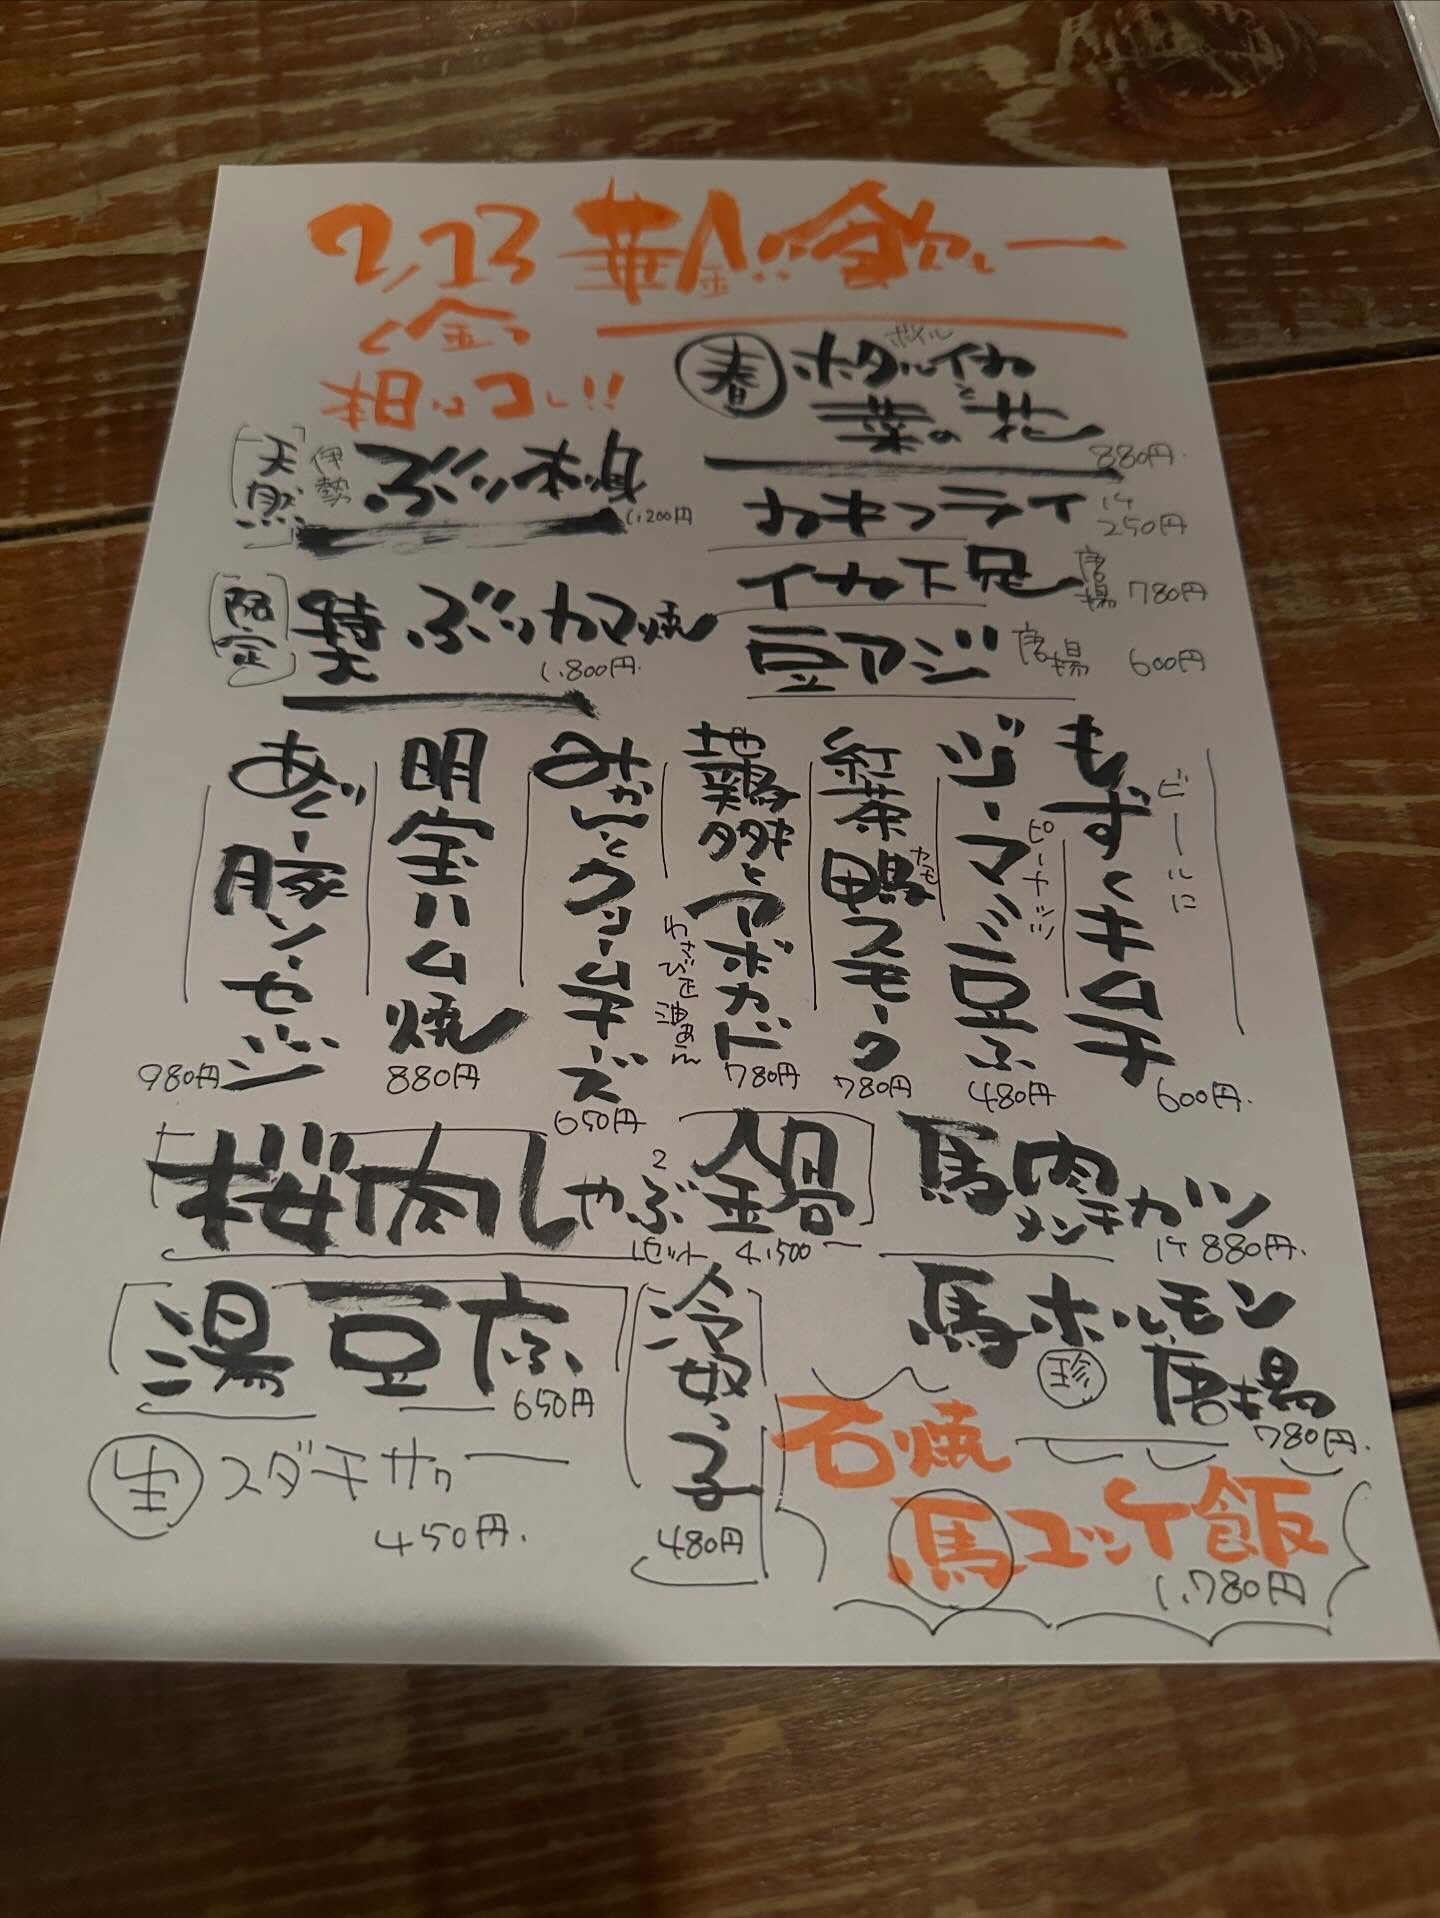 2/13 華金
金
ボイル
春 ホタルイカと
菜の花
880円
天然 伊勢 ぶり刺身
1,200円
カキフライ 1ケ 250円
イカ下足 唐揚 780円
限定 特大 ぶりカマ焼
1,800円
豆アジ 唐揚 600円
ビールに
もずくキムチ
600円
ピーナッツ
ジーマミ豆ふ
480円
紅茶鴨スモーク
カモ
780円
地鶏
とアボカド
780円
みかんとクリームチーズ
650円
明宝ハム焼
880円
あぐー豚ソーセージ
980円
桜肉しゃぶ鍋
1セット 4,500ー
馬肉メンチカツ
1ケ 880円
湯豆ふ
650円
冷奴っ子
480円
馬ホルモン
珍 唐揚
780円
生 スダチサワー
450円
石焼
馬ユッケ飯
1,780円